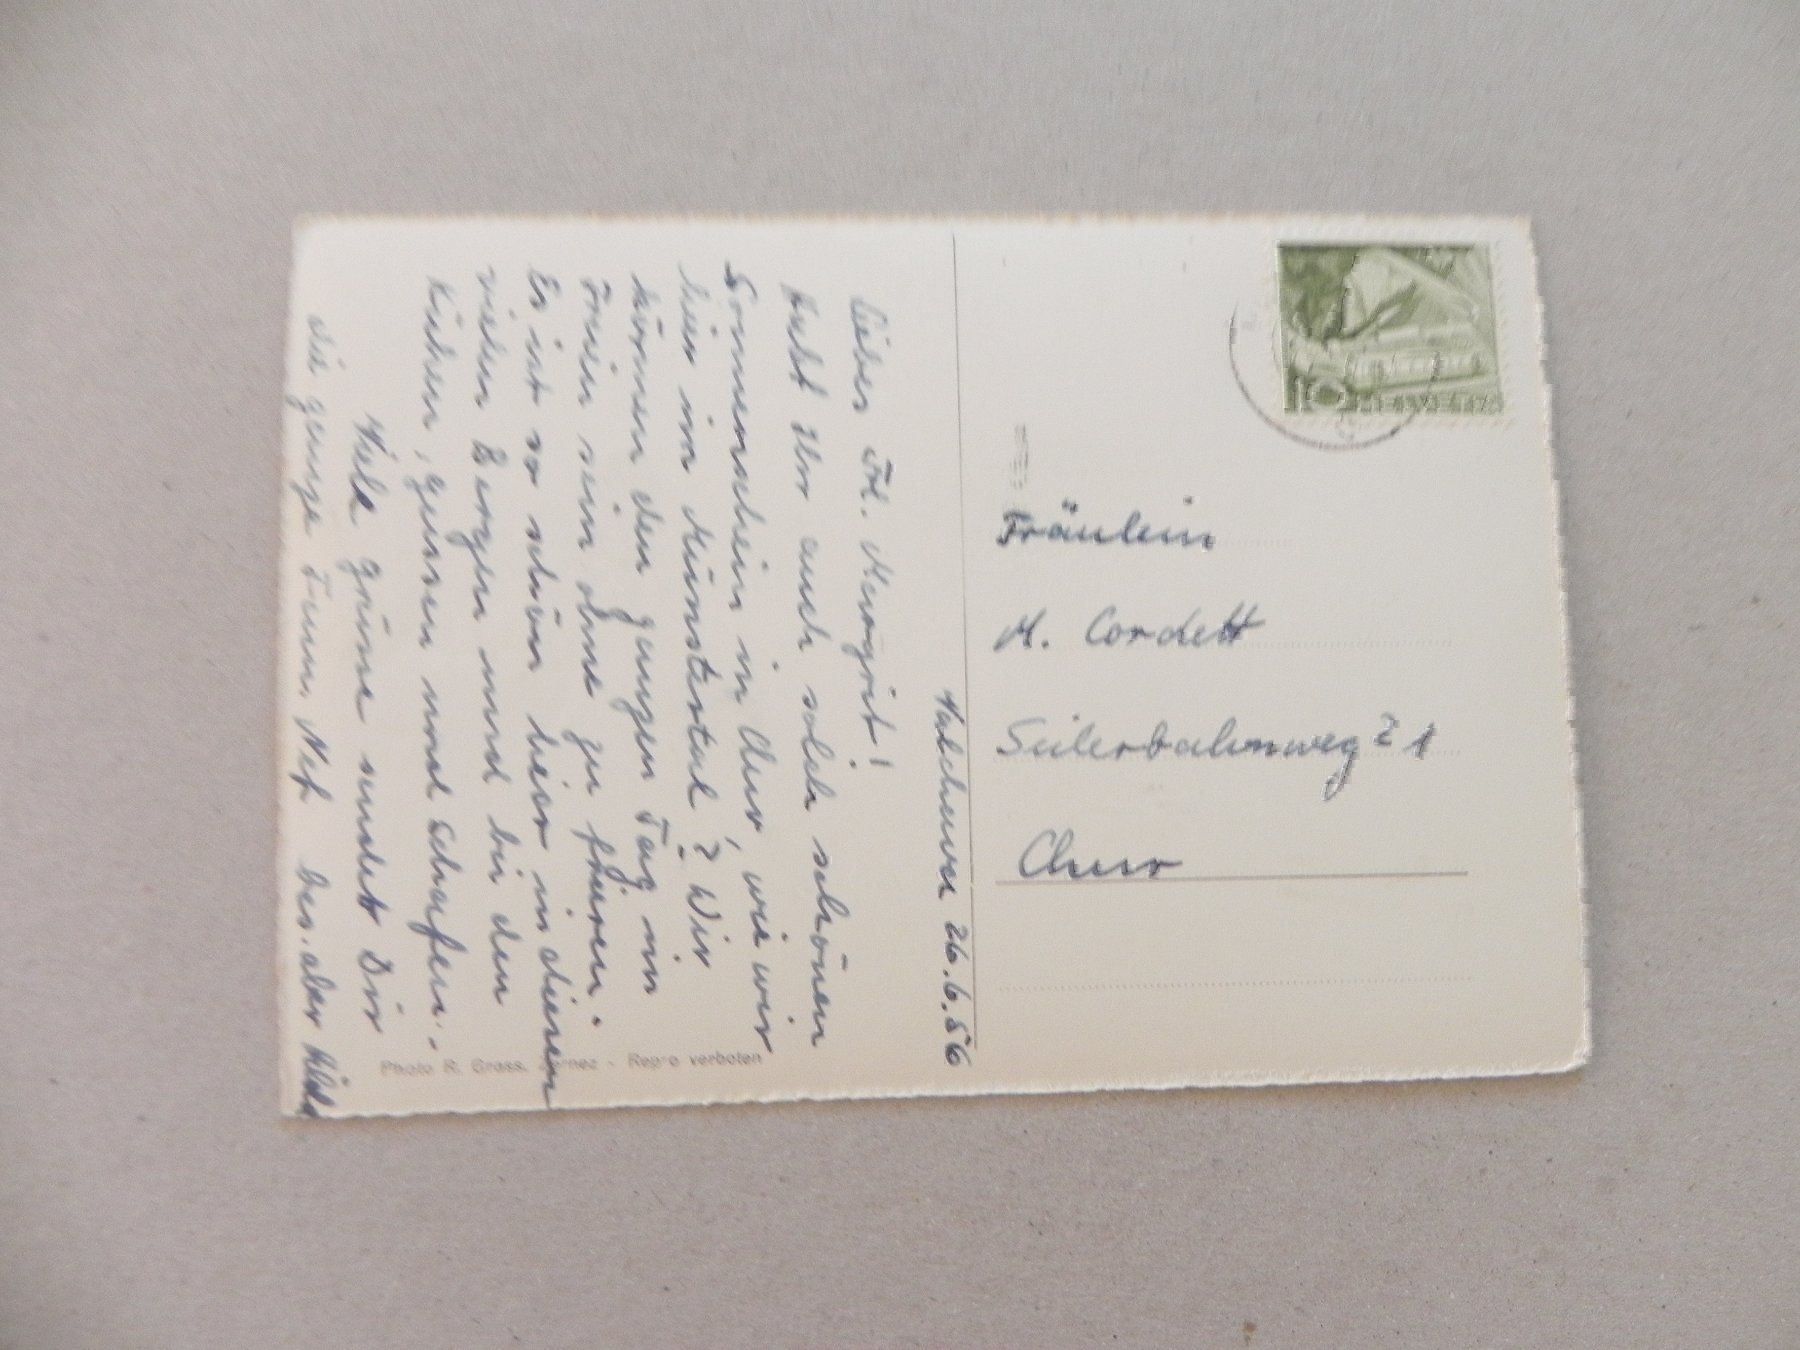 Valchava 26.6.56
Liebes Frl. Margrit!
Habt Ihr auch solch schönen
Sonnenschein in Chur, wie wir
hier im Münstertal? Wir
können den ganzen Tag im
Freien sein ohne zu frieren.
Es ist so schön hier in diesen
vielen Bergen und bei den
Kühen, Geissen und Schafen. -
Viele Grüsse sendet Dir
die ganze Fam. Nef bes. aber
Photo R. Grass, Zernez - Repro verboten
10
Fräulein
M. Cordett
Seilerbahnweg 21
Chur